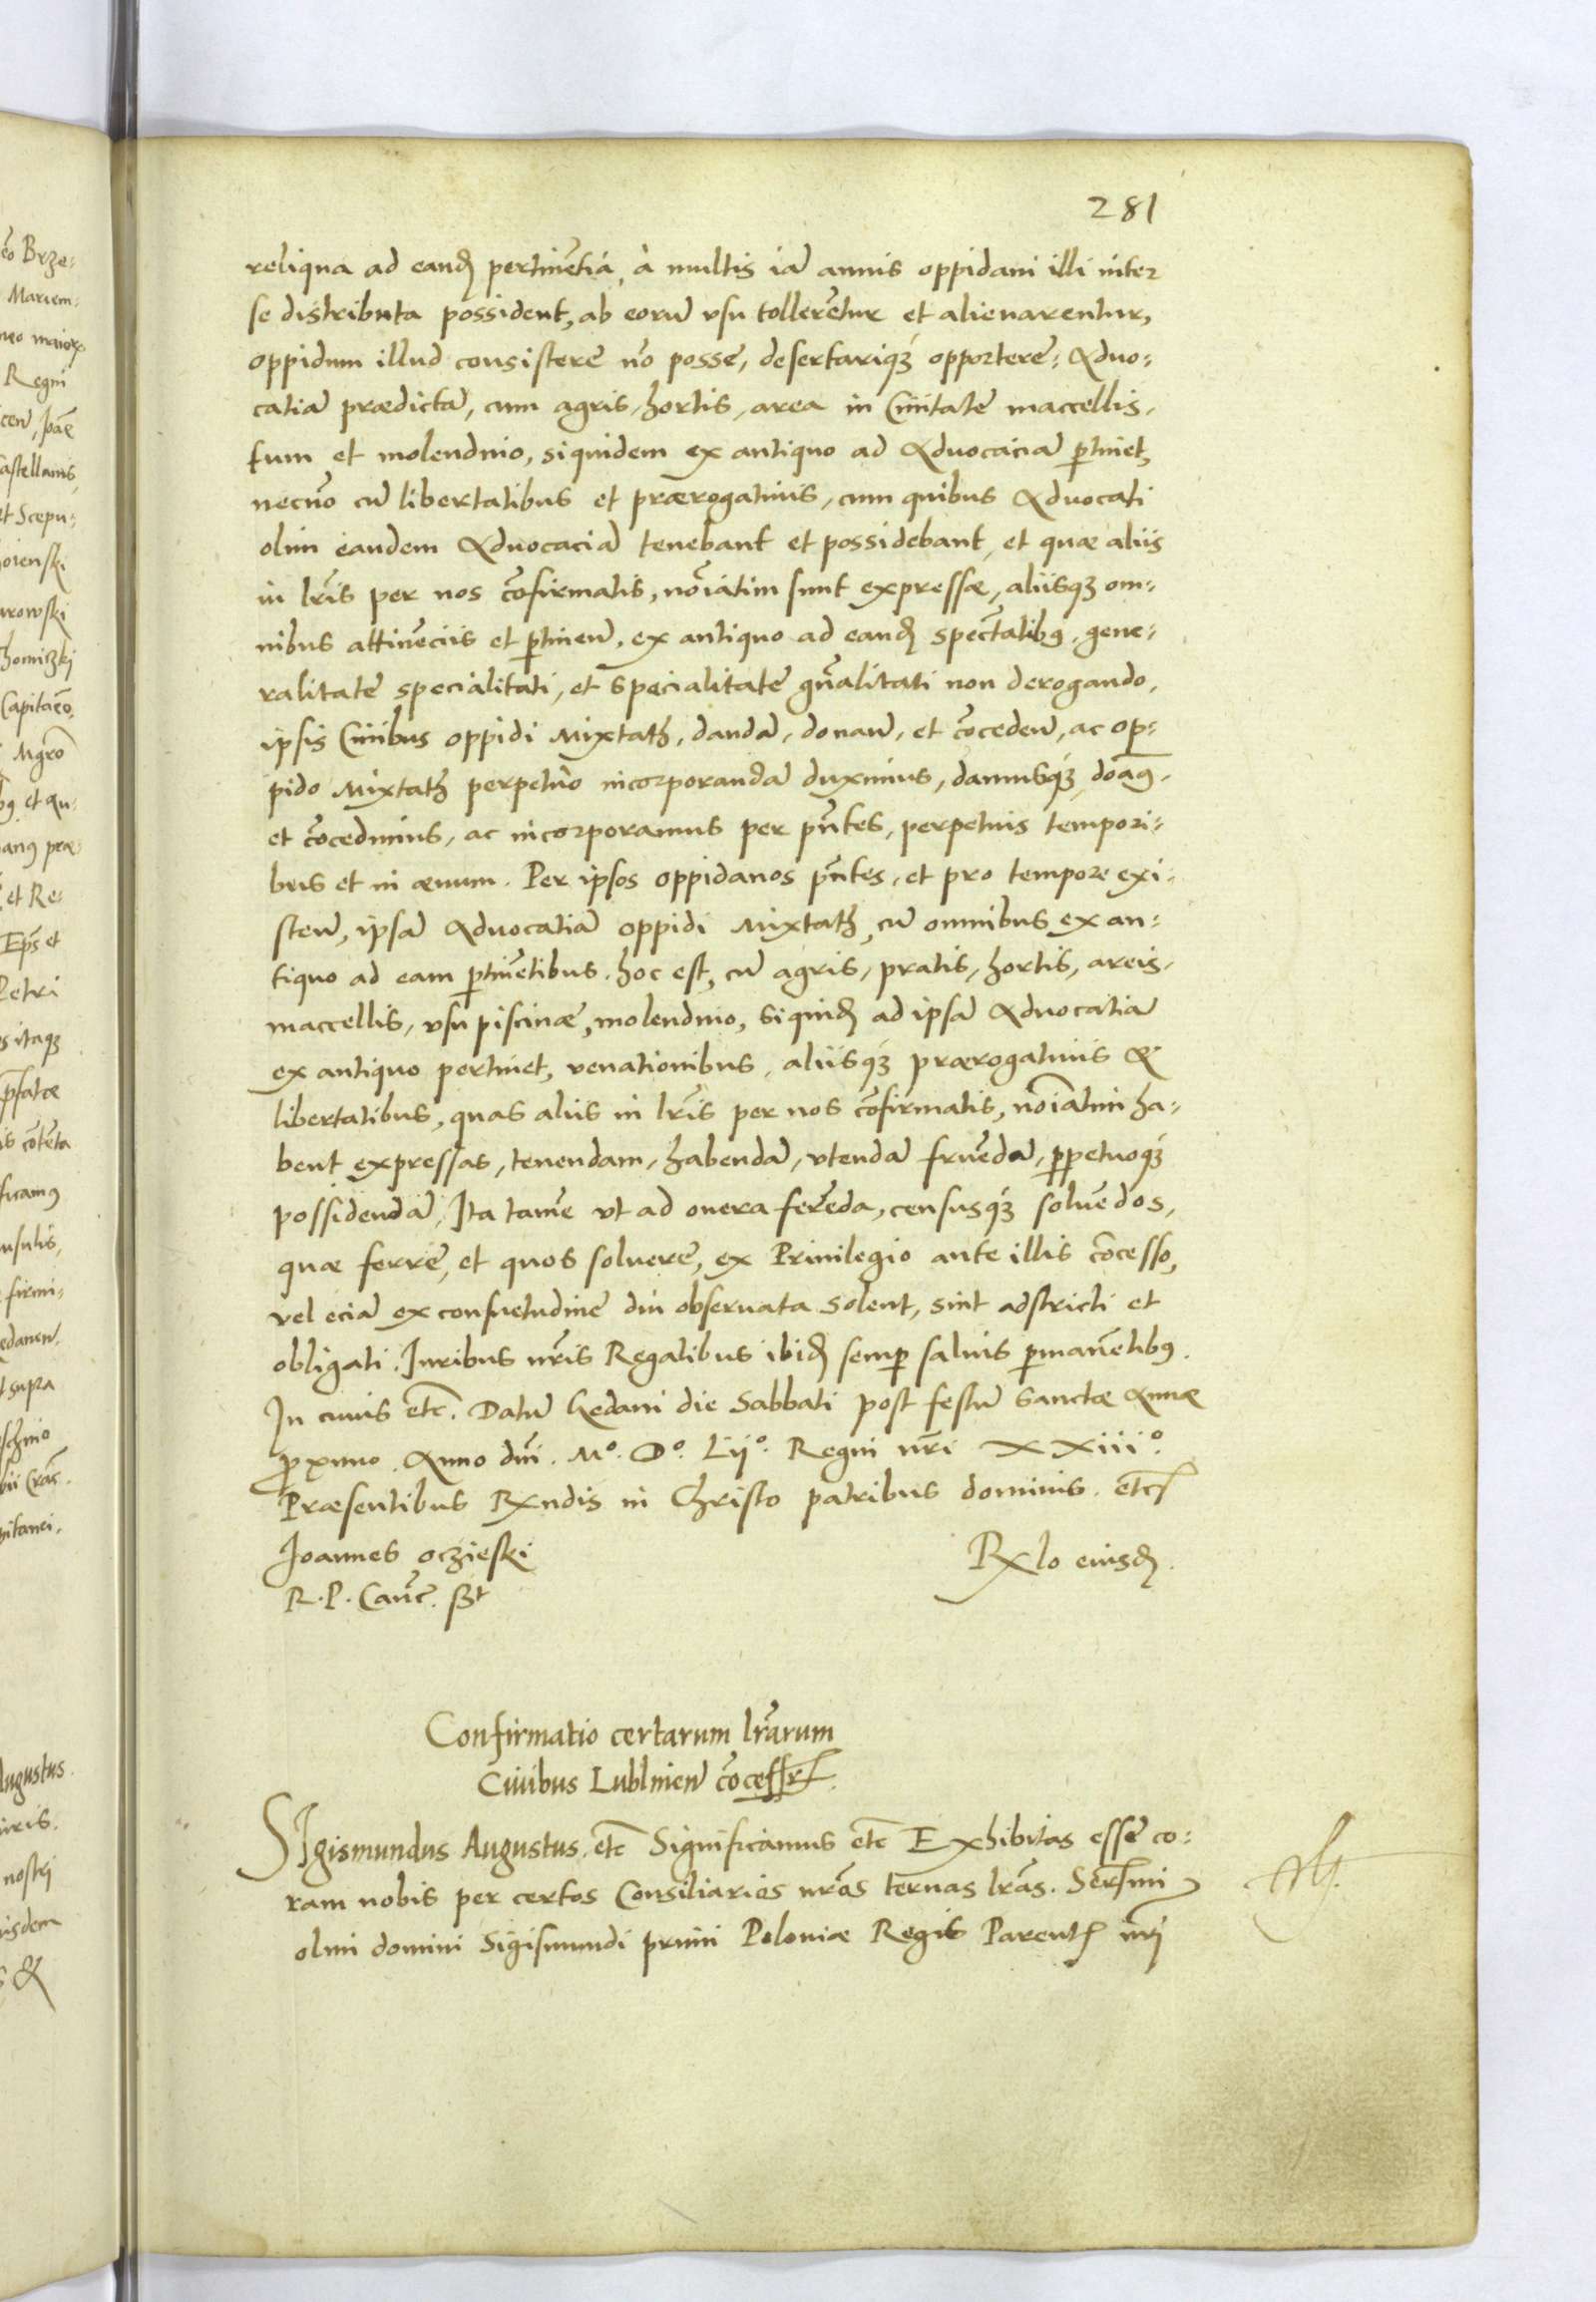 281
reliqua ad eand pertinẽtia, à multis iã annis oppidani illi inter
se distributa possident, ab eorũ vsu tollerẽtur et alienarentur,
oppidum illud consistere nõ posse, desertariq́ue opportere: Aduo:
catiã prædictã, cum agris, hortis, area in Ciuitate maccellis,
tum et molendino, siquidem ex antiquo ad Aduocaciã ꝑtinet,
necnõ cũ libertatibus et prærogatiuis, cum quibus Aduocati
olim eandem Aduocaciã tenebant et possidebant, et quæ aliis
in lr̃is per nos cõfirmatis, nõiatim sunt expressæ, aliisqꝫ om:
nibus attinẽciis et ꝑtinen̄, ex antiquo ad eand spectãtibꝰ, gene:
ralitatẽ specialitati, et specialitatẽ gn̄alitati non derogando,
ipsis Ciuibus oppidi Mixtath, dandã, donan̄, et cõceden̄, ac op:
pido Mixtath perpetuo incorporandã duximus, damusq́ꝫ, doãꝰ,
et cõcedimus, ac incorporamus per pñtes, perpetuis tempori:
bus et in æuum. Per ipsos oppidanos pñtes, et pro tempore exi:
sten̄, ipsã Aduocatiã oppidi Mixtath, cũ omnibus ex an:
tiquo ad eam ꝑtinẽtibus, hoc est, cũ agris, pratis, hortis, areis,
maccellis, vsu piscinæ, molendino, siquid ad ipsã Aduocatiã
ex antiquo pertinet, venationibus, aliisq́ꝫ prærogatiuis &
libertatibus, quas aliis in lr̃is per nos cõfirmatis, nõiatim ha:
bent expressas, tenendam, habendã, vtendã fruẽdã, ꝑpetuoq́ꝫ
possidendã, Ita tamẽ vt ad onera ferẽda, censusq́ꝫ soluẽdos,
quæ ferre, et quos soluere, ex Priuilegio ante illis cõcesso,
vel eciã ex consuetudine diu obseruata solent, sint adstricti et
obligati. Iuribus nr̃is Regalibus ibid semꝑ saluis ꝑmanẽtibꝰ.
In cuius etc. Datũ Gedani die Sabbati post festũ sanctæ Annæ
ꝓximo. Anno dñi. Mº. Dº. Lijº. Regni nr̃i XXiiiº.
Præsentibus Rxndis in Christo patribus dominis. etc
Joannes oczieski
R. P. Canc̃. sst
Rxlo eiusd.
Confirmatio certarum lr̃arum
Ciuibus Lublinen̄ cõcessar
SIgismundus Augustus. etc Significamus etc Exhibitas esse co:
ram nobis per certos Consiliarios nr̃os ternas lr̃as. Serſmi
olim domini Sigismundi primi Poloniæ Regis Parent nr̃j